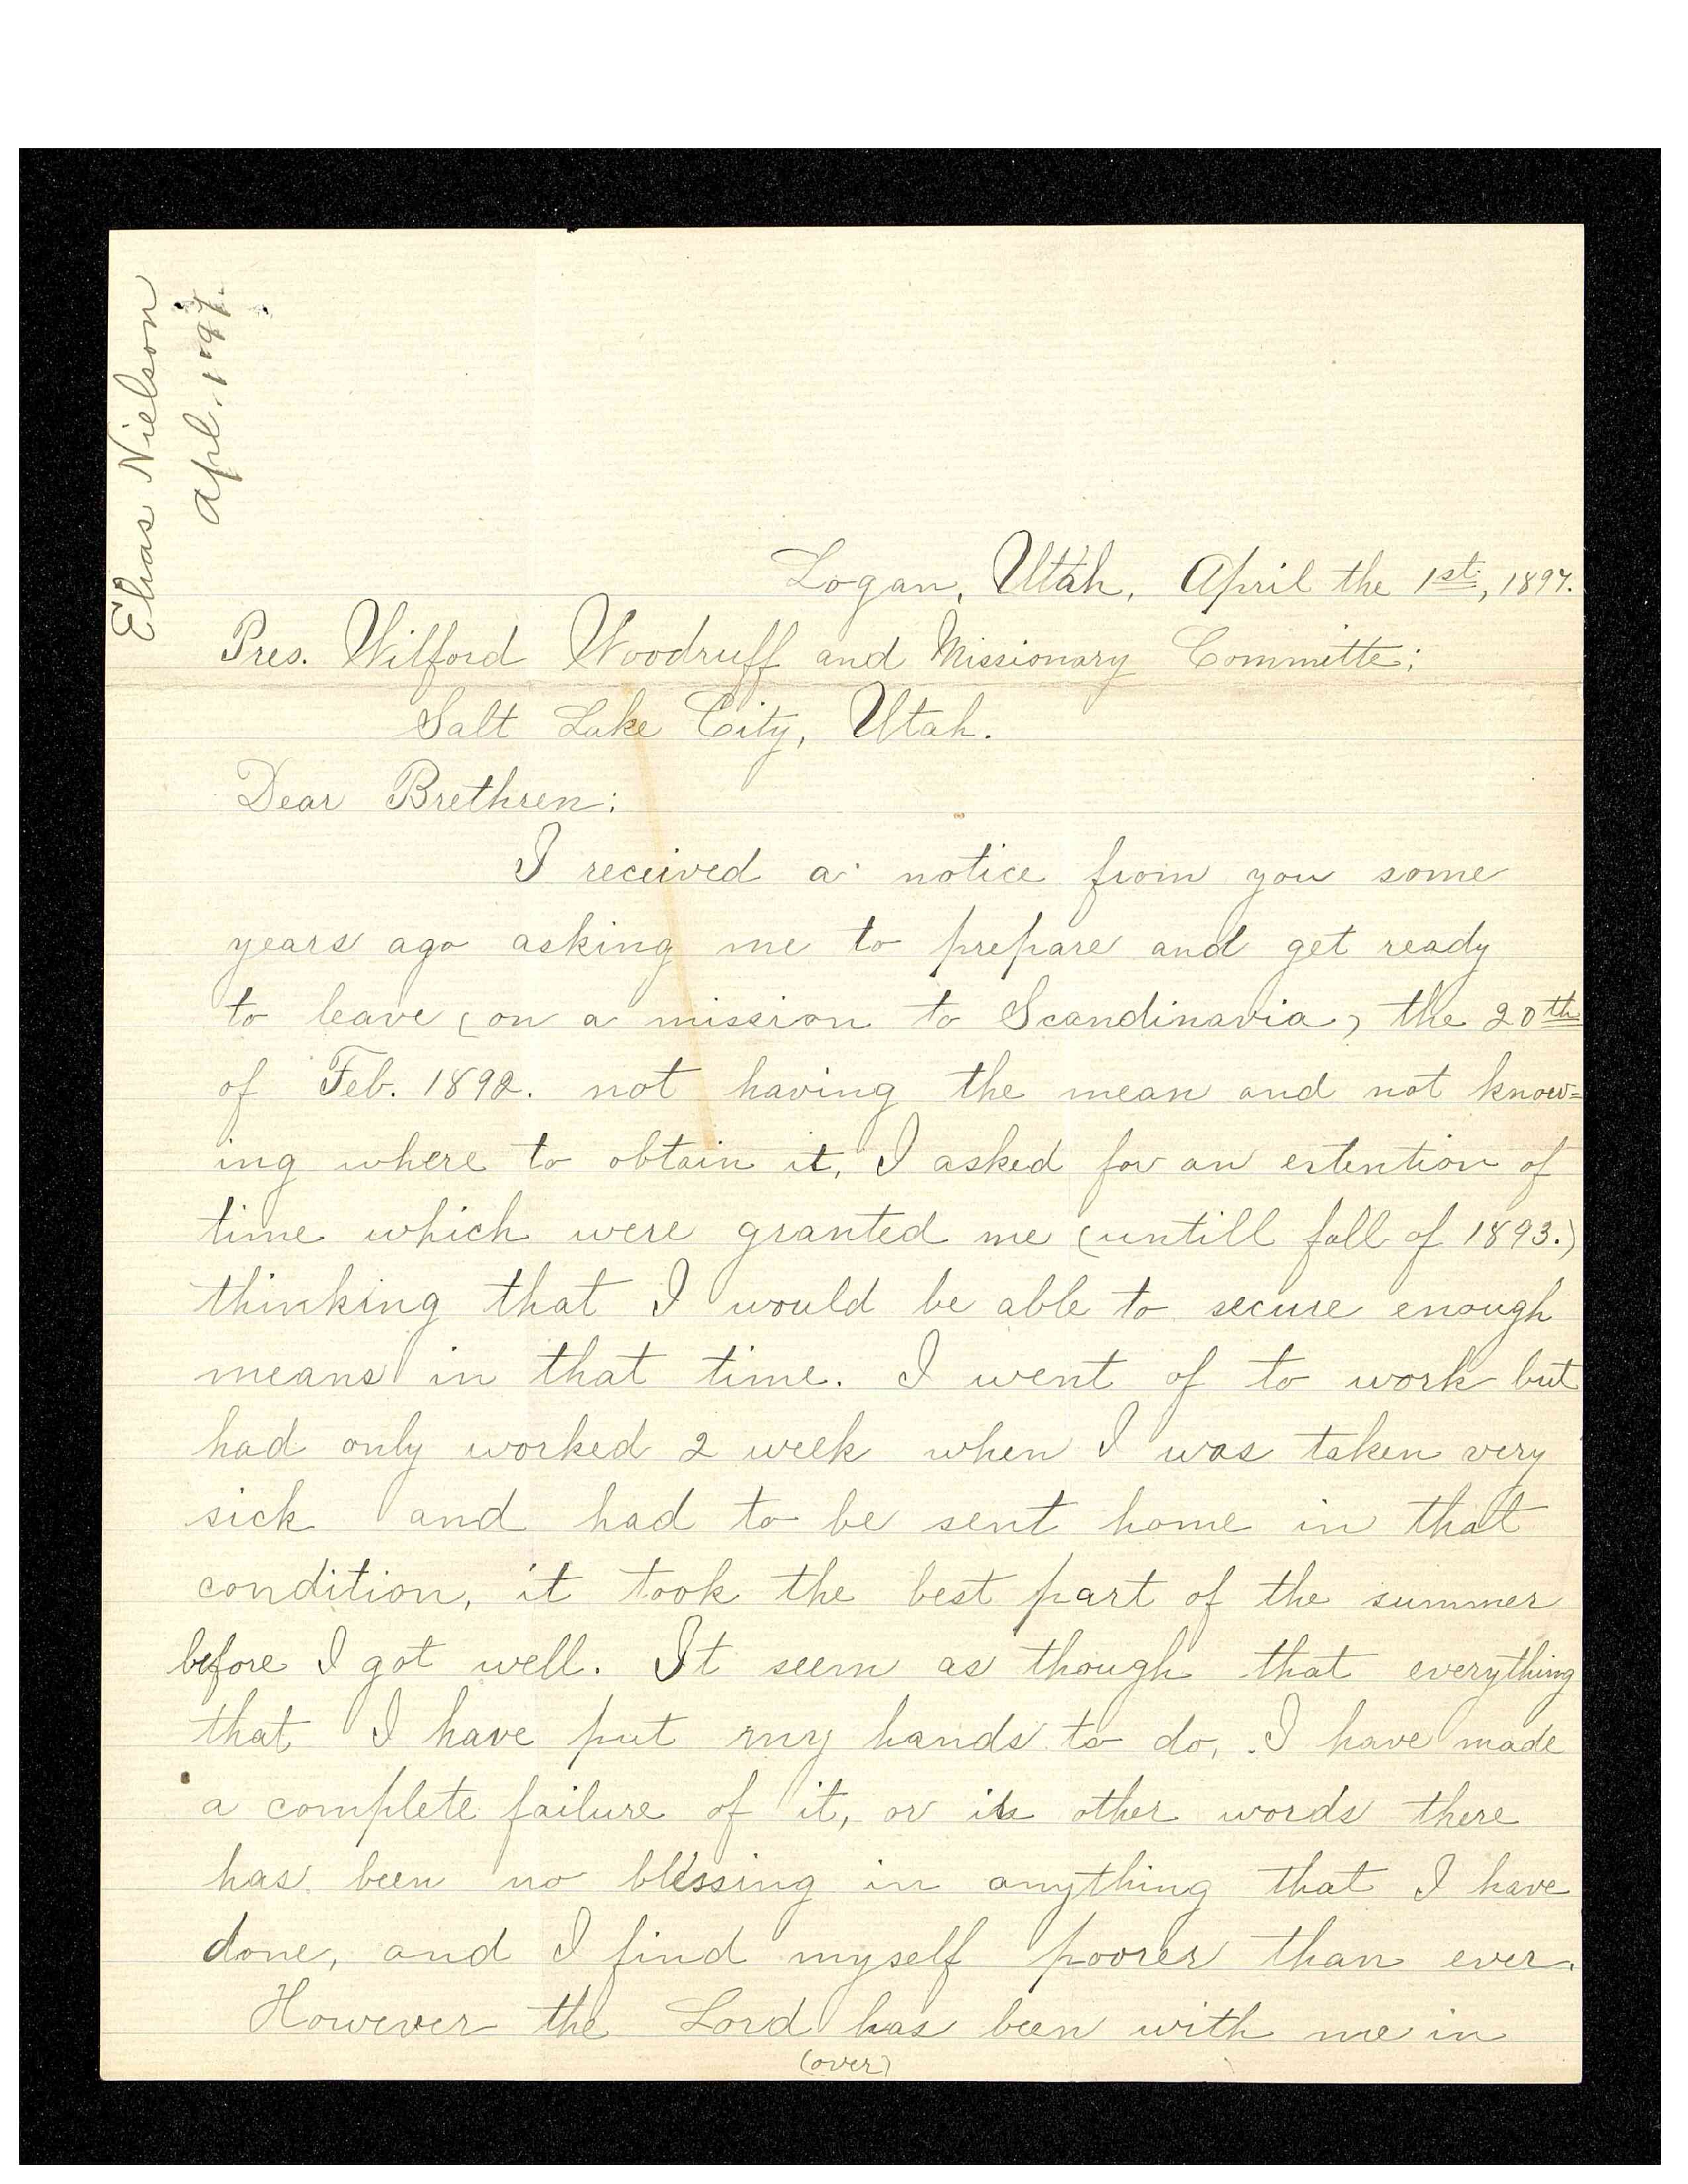 Elias Nielson
Apl. 1 '97.
Logan, Utah, April the 1st, 1897.
Pres. Wilford Woodruff and Missionary Committe;
Salt Lake City, Utah.
Dear Brethren:
I received a notice from you some
years ago asking me to prepare and get ready
to leave (on a mission to Scandinavia) the 20th
of Feb. 1892. not having the mean and not know=
ing where to obtain it, I asked for an extention of
time which were granted me (untill fall of 1893.)
thinking that I would be able to secure enough
means in that time. I went of to work but
had only worked 2 week when I was taken very
sick and had to be sent home in that
condition, it took the best part of the summer
before I got well. It seem as though that everything
that I have put my hands to do, I have made
a complete failure of it, or in other words there
has been no blessing in anything that I have
done, and I find myself poorer than ever.
However the Lord has been with me in
(over)